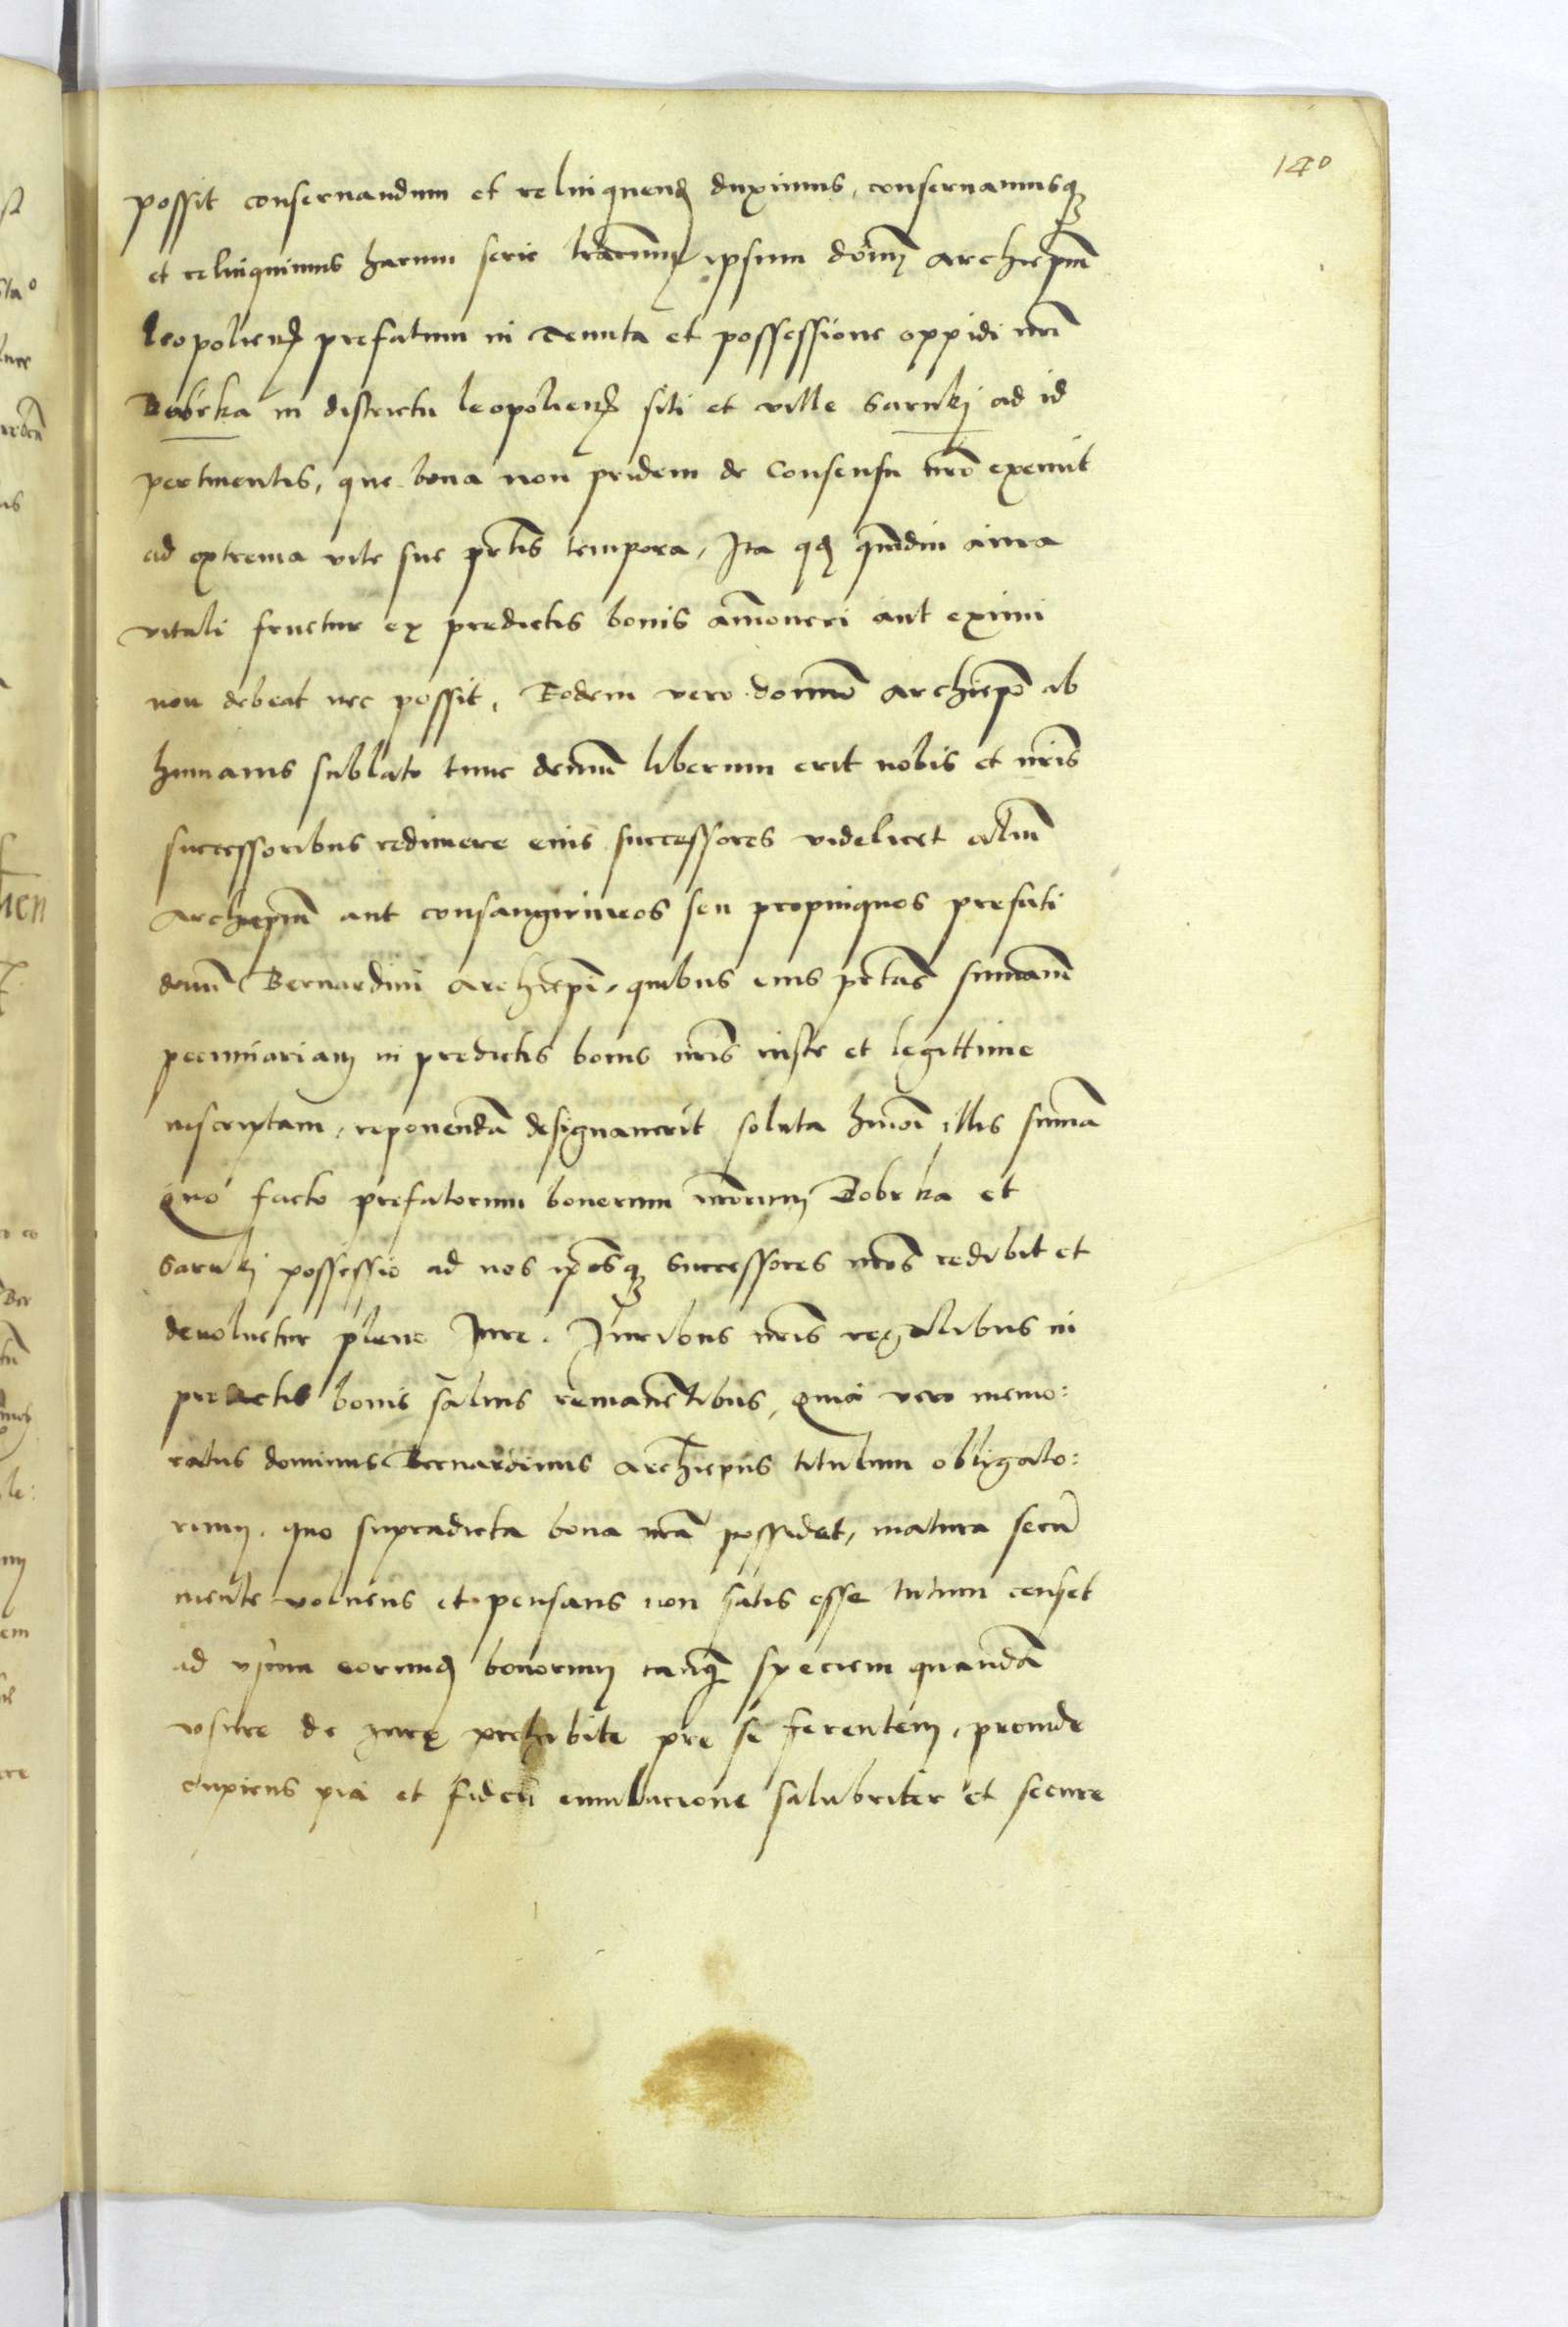 140
possit conseruandum et relinquend duximus, conseruamusq
et relinquimus harum serie lrarum ipsum dom̅ Archiepm̅
leopolien̅ prefatum in tenuta et possessione oppidi nr̅i
Bobrka in districtu leopolien̅ siti et ville Sarnki ad id
pertinentis, que bona non pridem de Consensu nr̅o exemit
ad extrema vite sue pn̅tis tempora, Ita qd̅ qm̅diu aura
vitali fruetur ex predictis bonis am̅oueri aut eximi
non debeat nec possit, Eodem vero domino Archiepo̅ ab
humanis sublato tunc demum̅ liberum erit nobis et nr̅is
successoribus redimere eius successores videlicet aliu̅
Archiepm̅ aut consanguineos seu propinquos prefati
domini̅ Bernardini Archiepi̅, quibus eius pn̅tas̅ summam̅
pecuniariam in predictis bonis nr̅is iuste et legittime
inscriptam, reponenda̅ designauerit soluta hmo̅i illis suma̅
Quo facto prefatorum bonorum nr̅orum Bobrka et
Sarnki possessio ad nos ipos̅q successores nr̅os redibit et
deuoluetur pleno Jure. Juribus nr̅is regalibus in
predictis bonis saluis remane̅tibus, Quia vero memo:
ratus dominus Bernardinus Archiepus̅ titulum obligato:
rium, quo supradicta bona nr̅a possidet, matura secu̅
mente voluens et pensans non satis esse tutum censet
ad vsum eorund bonorum tanq̅ speciem quanda̅
vsure de iure prohibite pre se ferentem, proinde
cupiens pia et fideli emulacione salubriter et secure